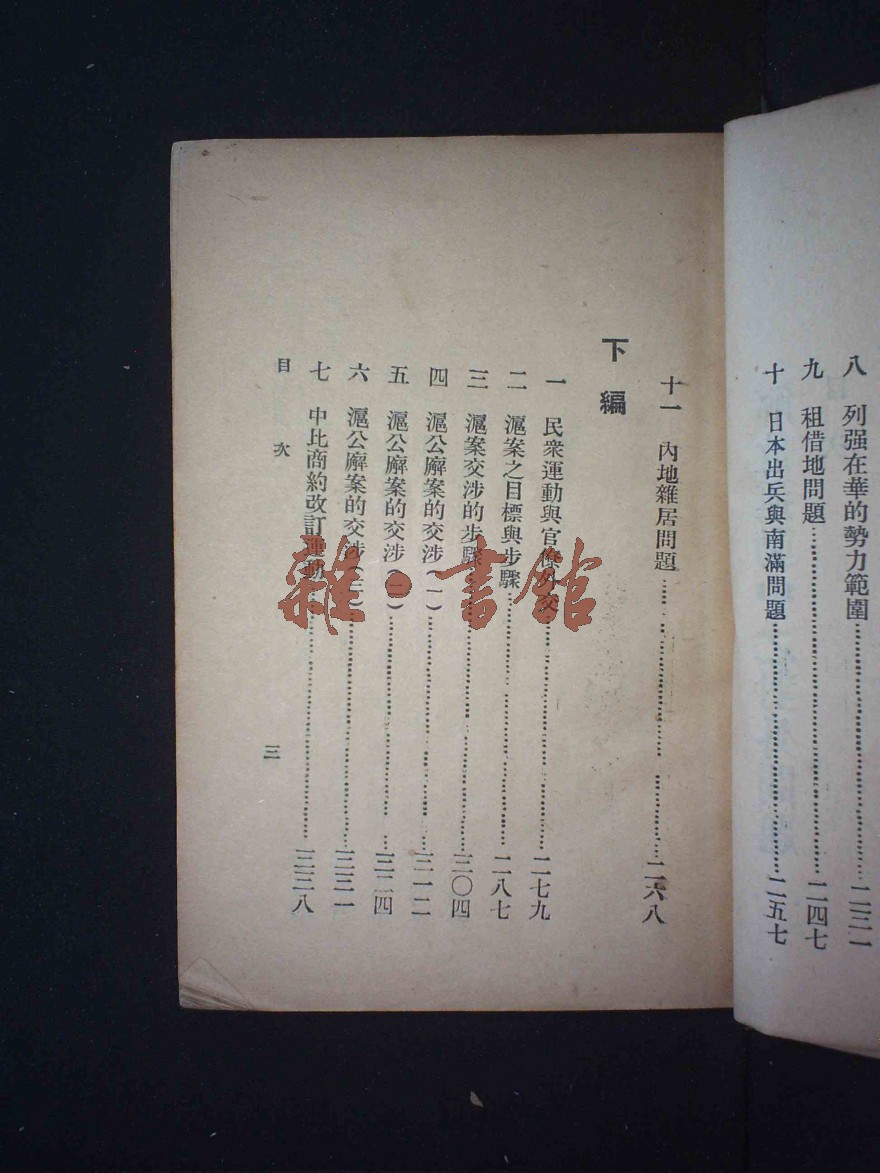 八 列强在華的勢力範圍……二三一
九 租借地問題……二四七
十 日本出兵與南滿問題……二五七
十一 內地雜居問題……二六八
下編
一 民衆運動與官僚外交……二七九
二 滬案之目標與步驟……二八七
三 滬案交涉的步驟……三〇四
四 滬公廨案的交涉(一)……三一二
五 滬公廨案的交涉(二)……三二四
六 滬公廨案的交涉(三)……三三一
七 中比商約改訂運動……三三八
目次
三
雜·書館